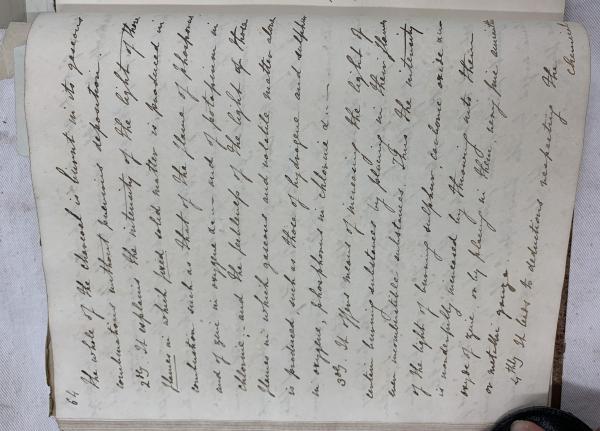 64
The whole of the charcoal is burnt in its gaseous
combinations without previous deposition
2dly It explains the intensity of the light of those
flames in which fixed solid matter is produced in
combustion such as that of the flame of phosphorus
and of zinc in oxygene &c— and of potassium in
chlorine: and the feebleness of the light of those
flames in which gaseous and volatile matter alone
is produced such as those of hydrogene and sulphur
in oxygene, phosphorus in chlorine &c—
3dly It offers means of increasing the light of
certain burning substances by placing in their flames
even incombustible substances. Thus the intensity
of the light of burning sulphur, carbonic oxide &c
is wonderfully increased by throwing into them
oxyde of zinc or by placing in them very fine amianthus
or metallic gauze.
4thly It leads to deductions respecting the
chemical